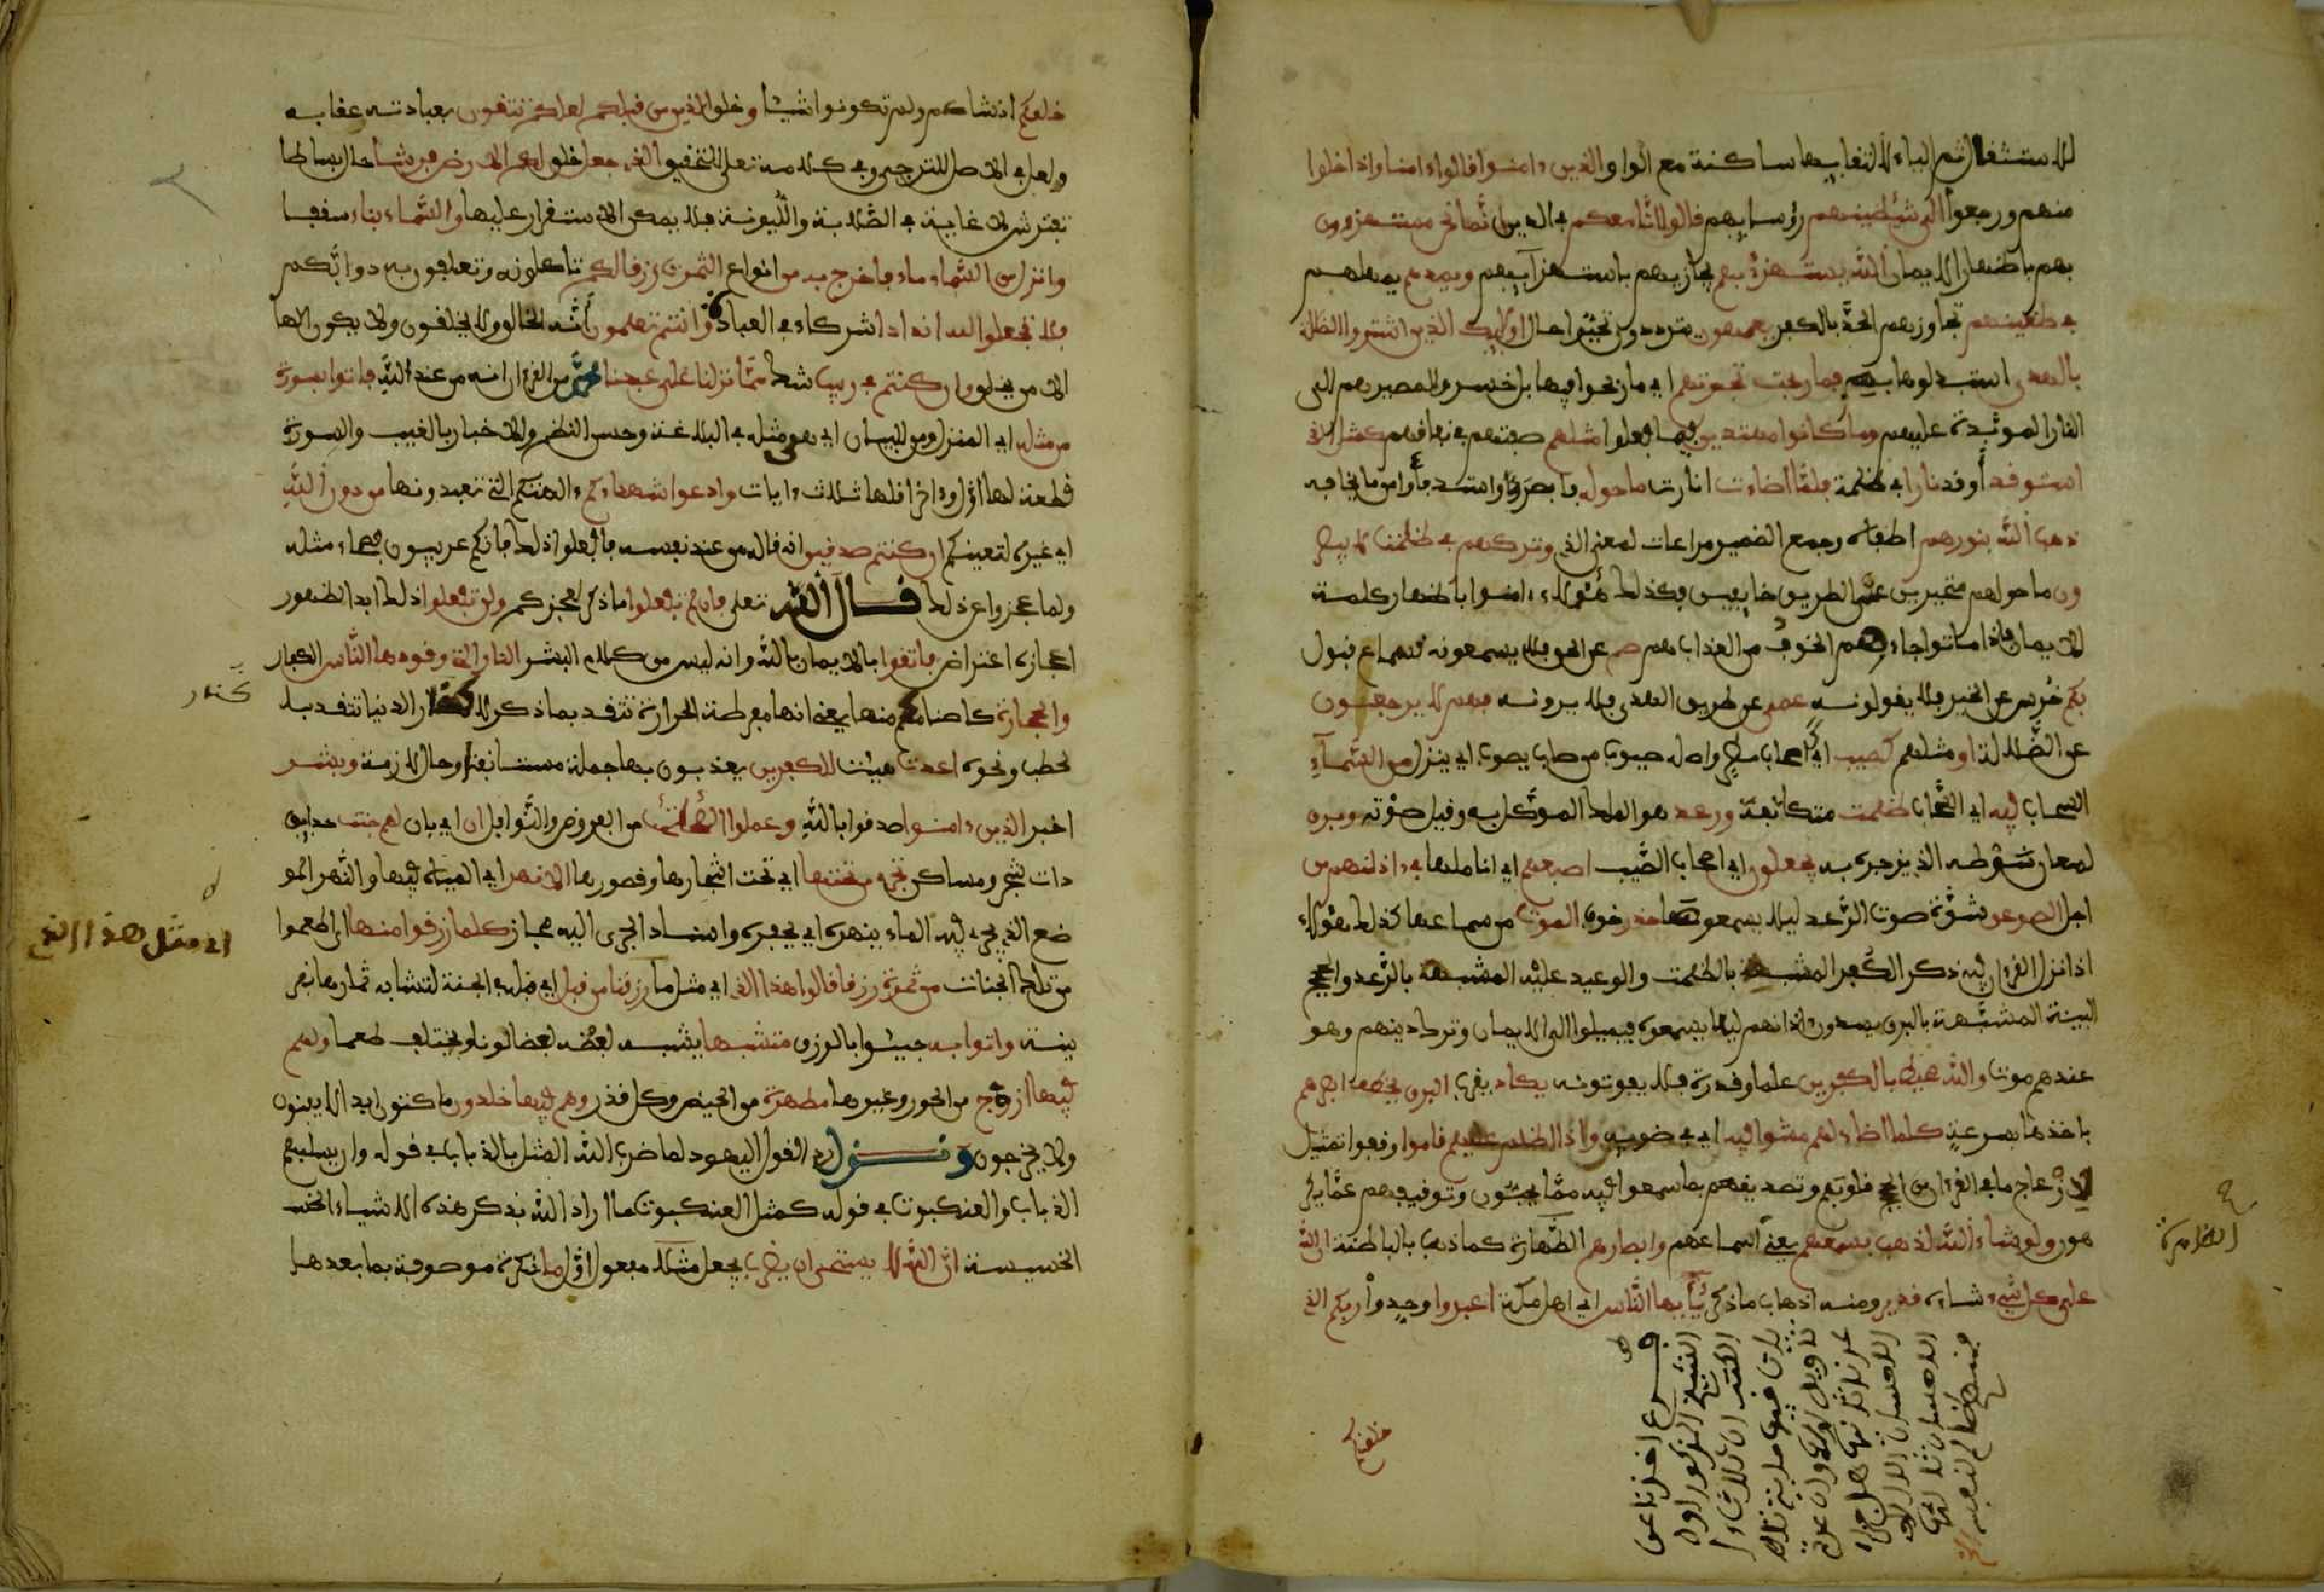 للاستثقال ثم الياء لالتقايها ساكنة مع الواو الذين ءامنوا قالوا ءامنا واذا خلوا
منهم ورجعوا الى شيطينهم رؤسايهم قالوا انا معكم في الدين انما نحن مستهزءون
بهم باظهار الايمان الله يستهزئ بهم يجازيهم باستهزايهم ويمدهم يمهلهم
في طغينهم تجاوزهم الحد بالكفر يعمهون يترددون تحيرا حال اوليك الذين اشتروا الضللة
بالهدى استبدلوها به فما ربحت تجرتهم اي ما ربحوا فيها بل خسروا لمصيرهم الى
النار الموبدة عليهم وما كانوا مهتدين فيما فعلوا مثلهم صفتهم في نفاقهم كمثل الذي
استوقد أوقد نارا في ظلمة فلما اضاءت انارت ما حوله فابصر واستدفأ وامن ما يخافه
ذهب الله بنورهم اطفاه وجمع الضمير مراعات لمعنى الذي وتركهم في ظلمت لا يبصر
ون ما حولهم متحيرين عن الطريق خايفين فكذلك هؤلاء ءامنوا باظهار كلمة
الايمان فاذا ماتوا جاءهم الخوف من العذاب هم صم عن الحق فلا يسمعونه سماع قبول
بكم خرس عن الخير فلا يقولونه عمي عن طريق الهدى فلا يرونه فهم لا يرجعون
عن الضللة او مثلهم كصيب اي كاصحاب مطر واصله صيوب من صاب يصوب اي ينزل من السماء
السحاب فيه اي السحاب ظلمت متكاثفة ورعد هو الملك الموكل به وقيل صوته وبرق
لمعان سوطه الذي يزجره به يجعلون اي اصحاب الصيب اصبعهم اي اناملها في ءاذانهم من
اجل الصوعق شدة صوت الرعد ليلا يسمعوها حذر خوف الموت من سماعها كذلك هؤلاء
اذا نزل القرءان فيه ذكر الكفر المشبه بالظلمت والوعيد عليه المشبه بالرعد والحجج
البينة المشبهة بالبرق يسدون ءاذانهم ليلا يسمعوه فيميلوا الى الايمان وترك دينهم وهو
عندهم موت والله محيط بالكفرين علما وقدرة فلا يفوتونه يكاد يقرب البرق يخطف ابصرهم
ياخذها بسرعة كلما اضاء لهم مشوا فيه اي في ضويه واذا اظلم عليهم قاموا وقفوا تمثيل
لازعاج ما في القرءان من الحجج قلوبهم وتصديقهم بما سمعوا فيه مما يحبون وتوقيفهم عما يكر
هون ولو شاء الله لذهب بسمعهم يعني اسماعهم وابصارهم الظاهرة كما ذهب بالباطنة ان الله
على كل شيء شاءه قدير ومنه اذهاب ما ذكر يأيها الناس اي اهل مكة اعبدوا وحدوا ربكم الذي
الظاهرة
خلقكم
خلقكم انشاكم ولم تكونوا شيا وخلق الذين من قبلكم لعلكم تتقون بعبادته عقابه
ولعل في الاصل للترجي وفي كلامه تعلى للتحقيق الذي جعل خلق لكم الارض فرشا حال بساطا
تفترش لا غاية في الصلابة والليونة فلا يمكن الاستقرار عليها والسماء بناء سقفا
وانزل من السماء ماء فاخرج به من انواع الثمرت رزقا لكم تاكلونه وتعلفون به دوابكم
فلا تجعلوا لله اندادا شركاء في العبادة وانتم تعلمون أنه الخالق ولا يخلقون ولا يكون الاها
الا من يخلق وان كنتم في ريب شك مما نزلنا على عبدنا محمد من القرءان انه من عند الله فاتوا بسورة
من مثله اي المنزل ومن للبيان اي هي مثله في البلاغة وحسن النظم والاخبار بالغيب والسورة
قطعة لها اول وءاخر اقلها ثلاث ءايات وادعوا شهداءكم ءالهتكم التي تعبدونها من دون الله
اي غيره لتعينكم ان كنتم صدقين انه قاله من عند نفسه فافعلوا ذلك فانكم عربيون فصحاء مثله
ولما عجزوا عن ذلك قال الله تعلى فان لم تفعلوا ما ذكر لعجزكم ولن تفعلوا ذلك ابدا لظهور
اعجازه اعتراض فاتقوا بالايمان بالله وانه ليس من كلام البشر النار التي وقودها الناس الكفار
والحجارة كاصنامهم منها يعني انها مفرطة الحرارة تتقد بما ذكر لا كنار الدنيا تتقد بلا
كنار
لحطب ونحوه اعدت هييت للكفرين يعذبون بها جملة مستانفة او حال لازمة وبشر
اخبر الذين ءامنوا صدقوا بالله وعملوا الصلحت من الفروض والنوافل ان اي بان لهم جنت حدايق
ذات شجر ومساكن تجري من تحتها اي تحت اشجارها وقصورها الانهر اي المياه فيها والنهر المو
ضع الذي يجري فيه الماء ينهره اي يحفره واسناد الجري اليه مجاز كلما رزقوا منها اطعموا
من تلك الجنات من ثمرة رزقا قالوا هذا الذي اي مثل ما رزقنا من قبل اي قبله في الجنة لتشابه ثمارها بقر
اي مثل هذا الذي
ينة واتوا به جيئوا بالرزق متشبها يشبه بعضه بعضا لونا ويختلف طعما ولهم
فيها ازوج من الحور وغيرها مطهرة من الحيض وكل قذر وهم فيها خلدون ماكثون ابدا لا يفنون
ولا يخرجون ونزل ردا لقول اليهود لما ضرب الله المثل بالذباب في قوله وان يسلبهم
الذباب والعنكبوت في قوله كمثل العنكبوت ما اراد الله بذكر هذه الاشياء الخسـ
الخسيسة ان الله لا يستحي ان يضرب يجعل مثلا مفعول اول ما نكرة موصوفة بما بعدها